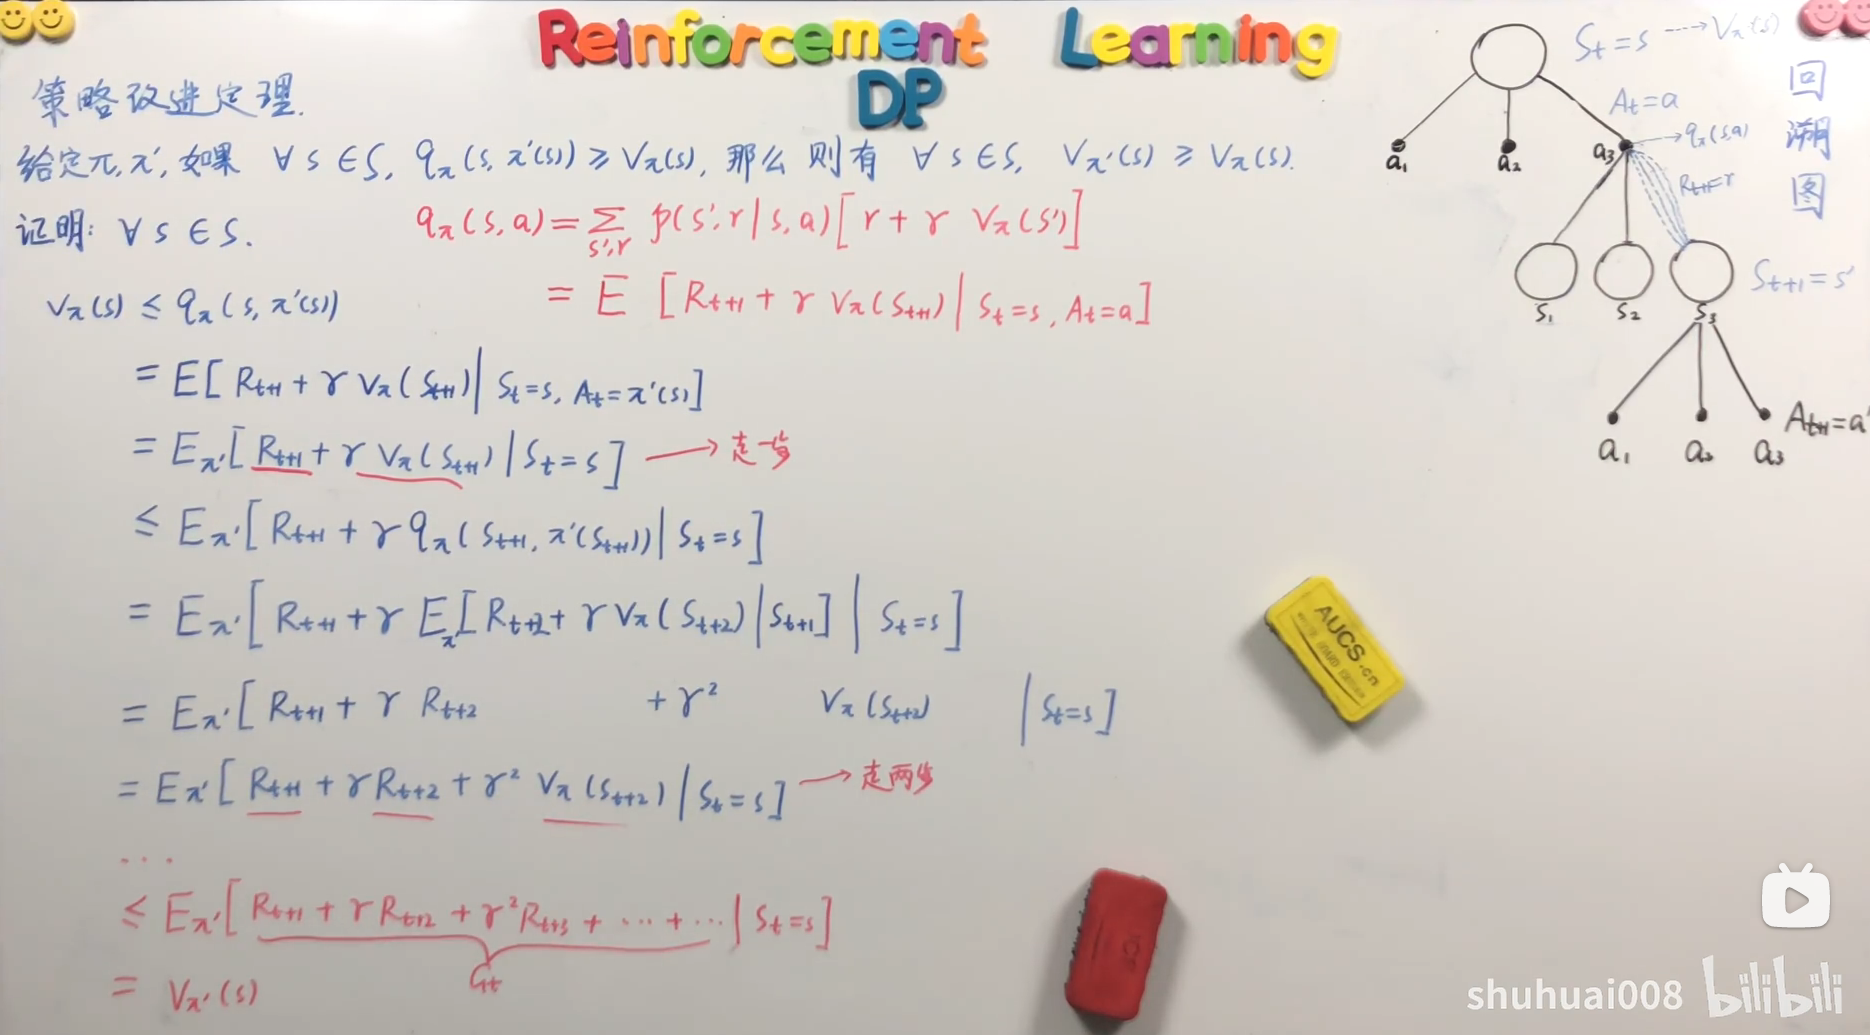 Reinforcement Learning
DP
策略改进定理.
给定π,π′,如果 ∀ s ∈ S, qπ(s, π′(s)) ≥ Vπ(s), 那么 则有 ∀ s ∈ S, Vπ′(s) ≥ Vπ(s).
证明: ∀ s ∈ S.
qπ(s,a) = Σs′,r p(s′,r|s,a)[r + γ Vπ(s′)]
= E [Rt+1 + γ Vπ(St+1) | St=s, At=a]
Vπ(s) ≤ qπ(s, π′(s))
= E[Rt+1 + γ Vπ(St+1) | St=s, At=π′(s)]
= Eπ′[Rt+1 + γ Vπ(St+1) | St=s] → 走一步
≤ Eπ′[Rt+1 + γ qπ(St+1, π′(St+1)) | St=s]
= Eπ′[Rt+1 + γ Eπ′[Rt+2 + γ Vπ(St+2) | St+1] | St=s]
= Eπ′[Rt+1 + γ Rt+2 + γ² Vπ(St+2) | St=s]
= Eπ′[Rt+1 + γ Rt+2 + γ² Vπ(St+2) | St=s] → 走两步
...
≤ Eπ′[Rt+1 + γ Rt+2 + γ² Rt+3 + ... + ... | St=s]
Gt
= Vπ′(s)
St=s ⇢ Vπ(s)
At=a
a1 a2 a3 → qπ(s,a)
Rt+1=r
St+1=s′
S1 S2 S3
At+1=a′
a1 a2 a3
回溯图
AUCS.cn
shuhuai008 bilibili